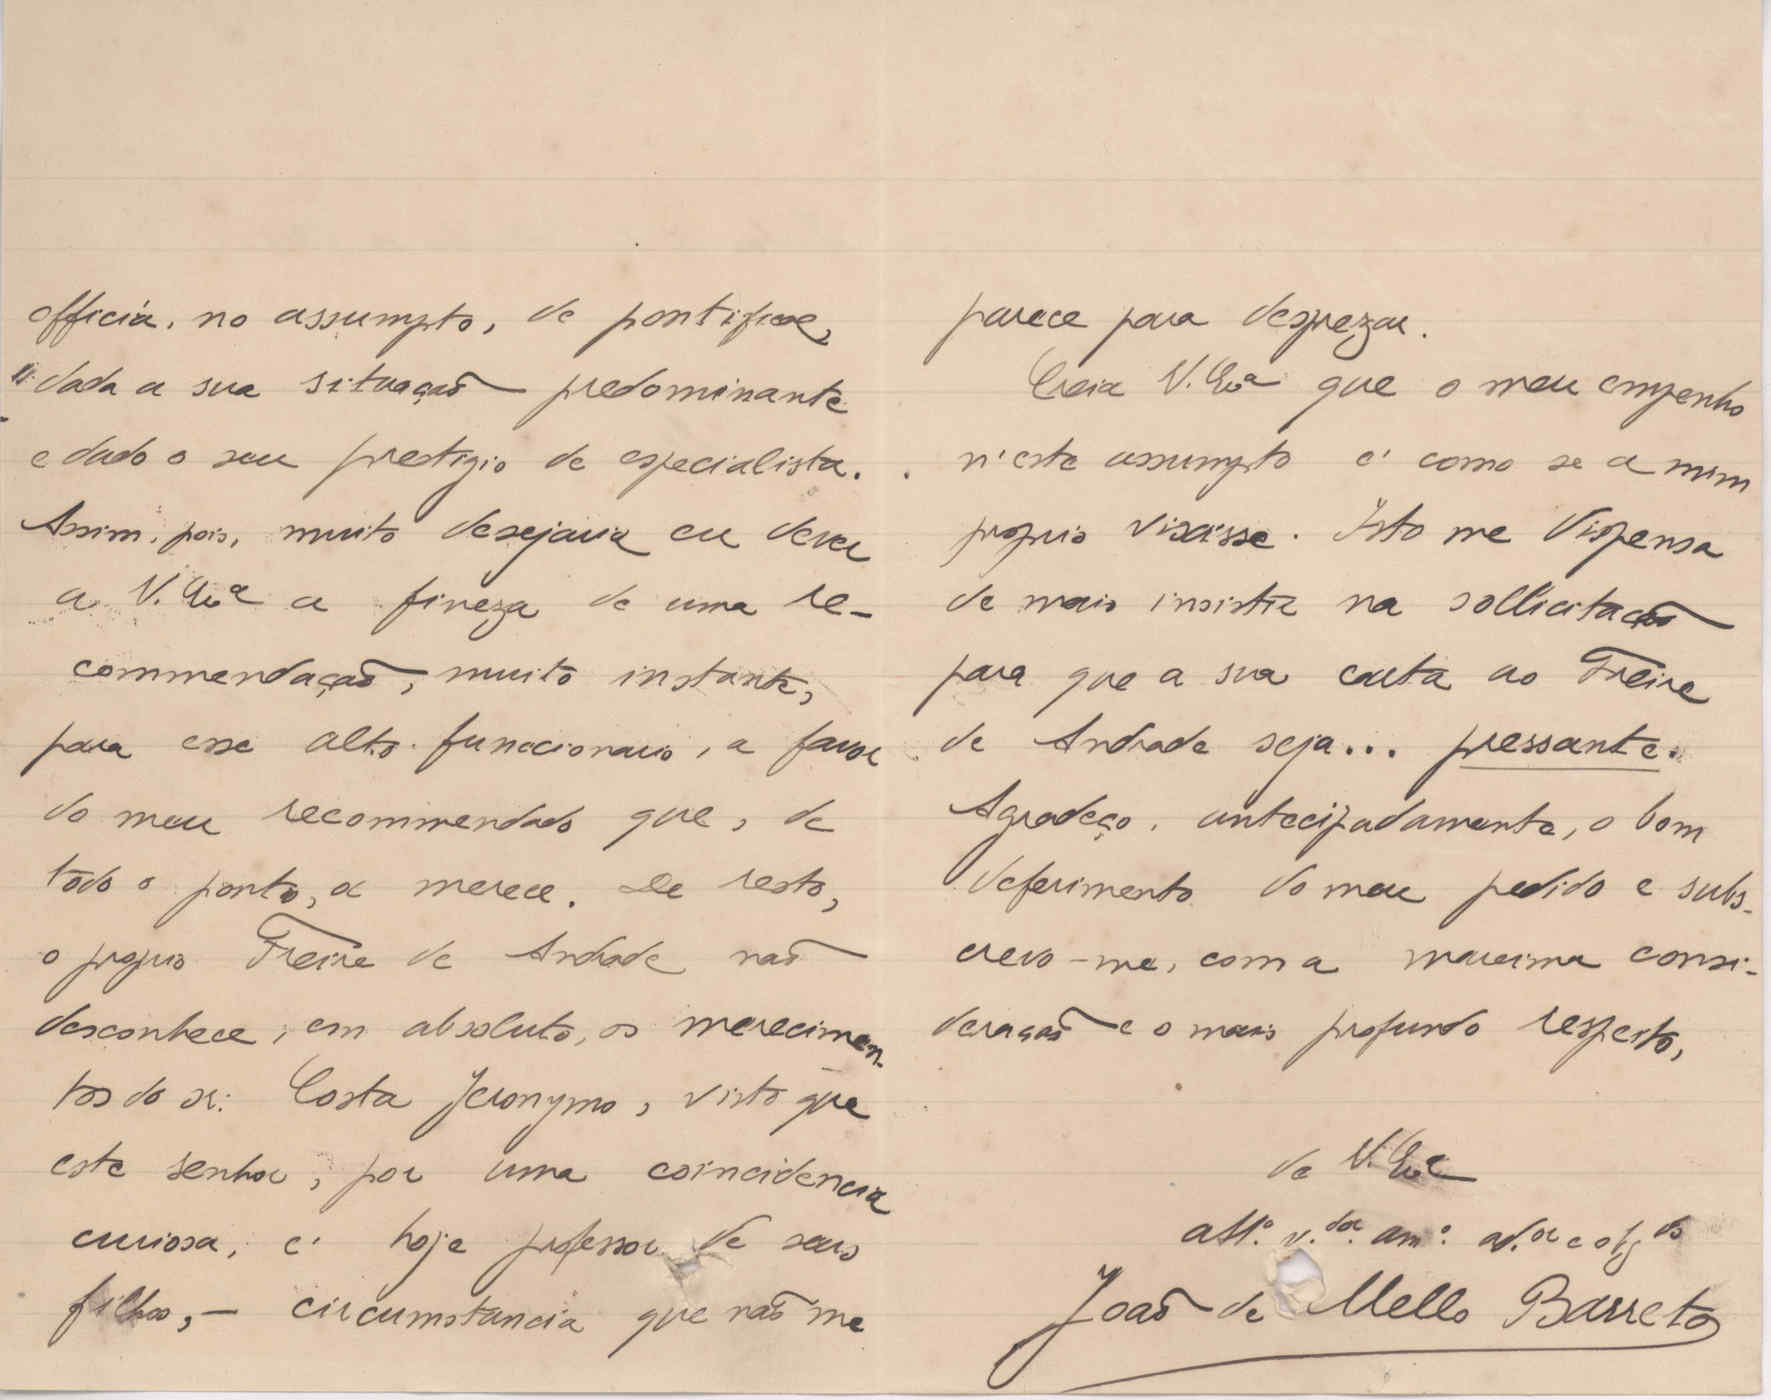 officia, no assumpto, de pontifice,
dada a sua situação predominante
e dado o seu prestigio de especialista.
Assim, pois, muito desejaria eu dever
a V. Exª a fineza de uma re-
commendação, muito instante,
para esse alto funccionario, a favor
do meu recommendado que, de
todo o ponto, a merece. De resto,
o proprio Freire de Andrade não
desconhece, em absoluto, os merecimen-
tos do sr. Costa Jeronymo, visto que
este senhor, por uma coincidencia
curiosa, é hoje professor de seus
filhos, — circumstancia que não me
parece para desprezar.
Creia V. Exª que o meu empenho
n'este assumpto é como se a mim
proprio visasse. Isto me dispensa
de mais insistir na sollicitação
para que a sua carta ao Freire
de Andrade seja... pressante.
Agradeço, antecipadamente, o bom
deferimento do meu pedido e subs-
crevo-me, com a maxima consi-
deração e o mais profundo respeito,
de V. Exª
attº. v.dor. amº. ad.or e obg.do
João de Mello Barreto